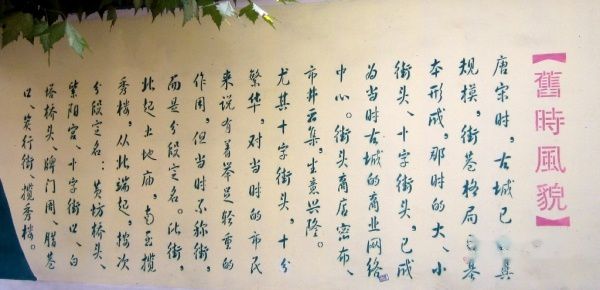 【舊時風貌】
唐宋时，古城已具
规模，街巷格局基
本形成，那时的大、小
街头、十字街头，已成
为当时古城的商业网络
中心。街头商店密布、
市井云集，生意兴隆。
尤其十字街头，十分
繁华，对当时的市民
来说有着举足轻重的
作用，但当时不称街，
而是分段定名。此街，
北起土地庙，南至揽
秀楼，从北端起，按次
分段定名：黄坊桥头、
紫阳宫、十字街口、白
塔桥头、牌门周、腊巷
口、箕行街、揽秀楼。